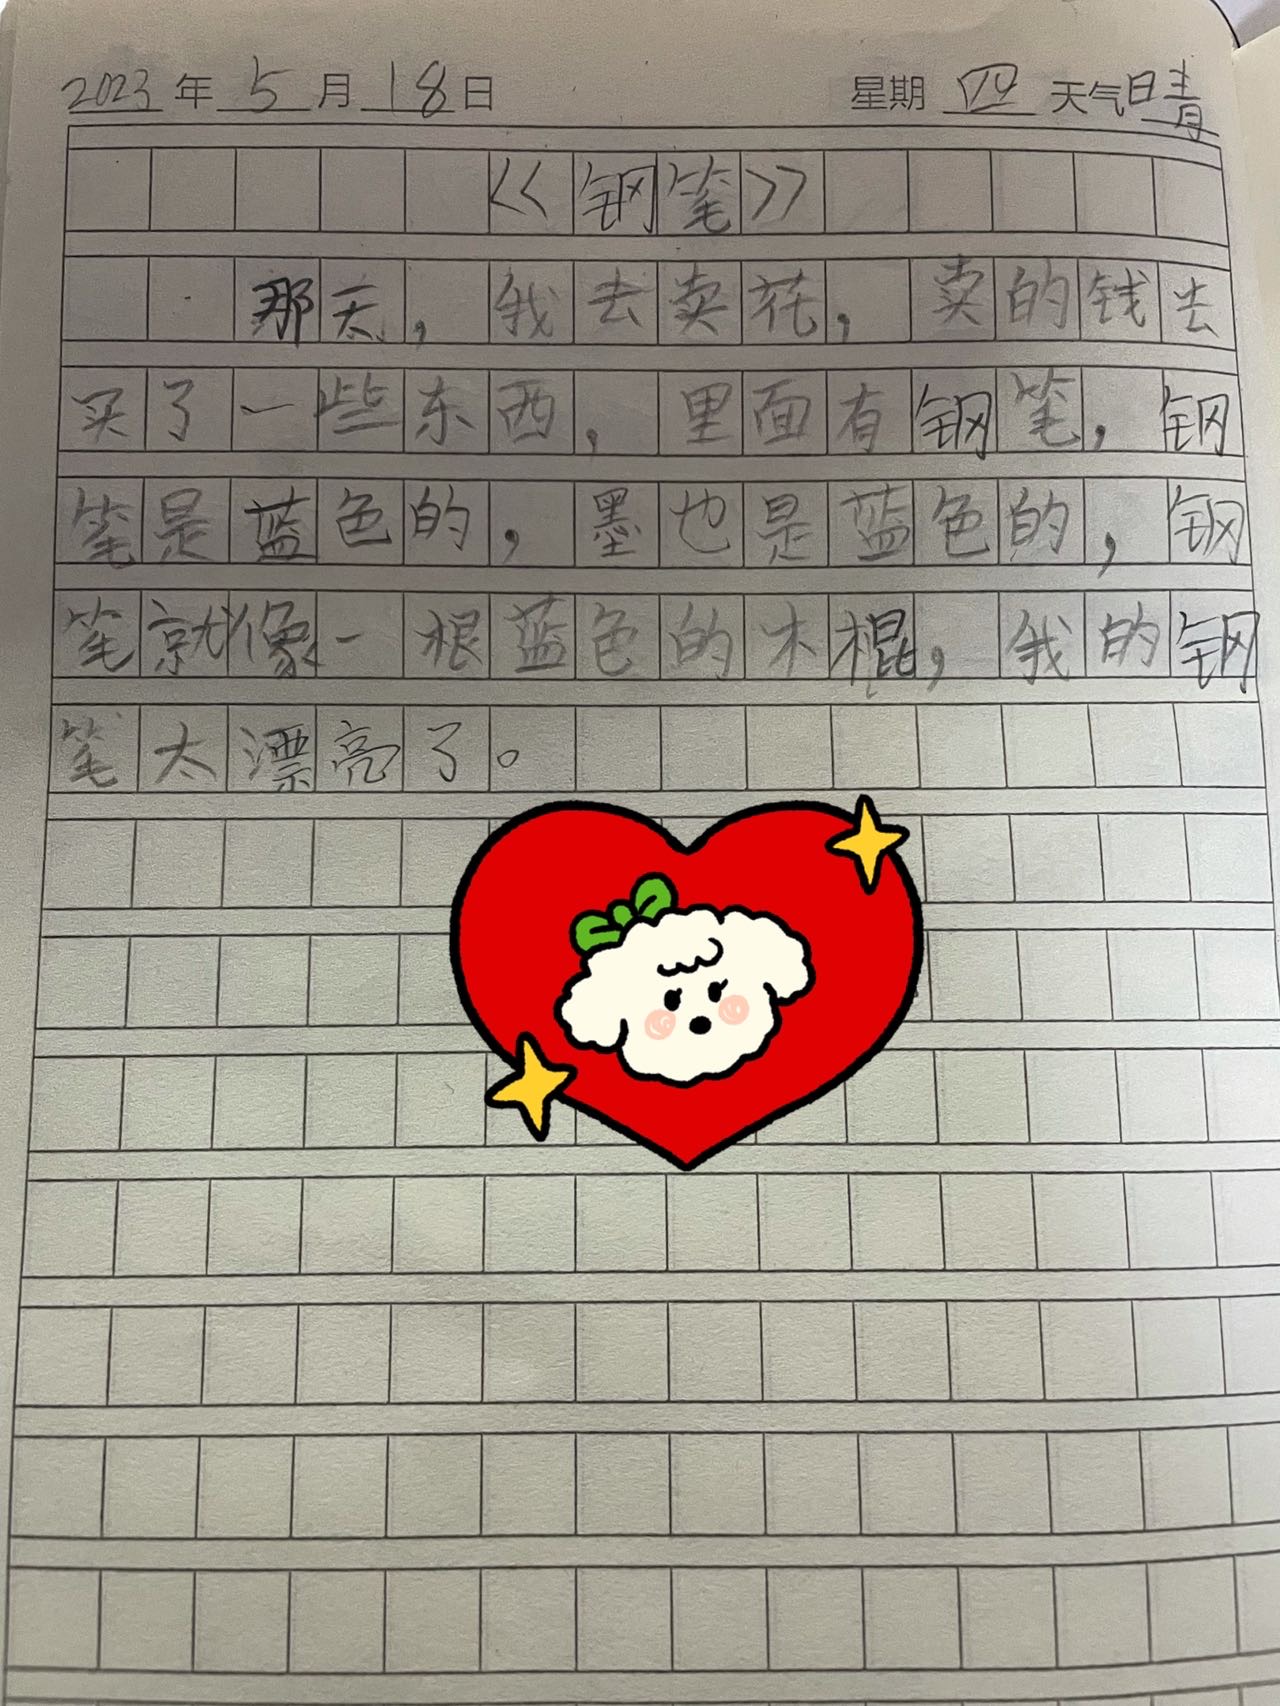 2023年5月18日 星期四 天气晴
<<钢笔>>
那天,我去卖花,卖的钱去
买了一些东西,里面有钢笔,钢
笔是蓝色的,墨也是蓝色的,钢
笔就像一根蓝色的木棍,我的钢
笔太漂亮了。